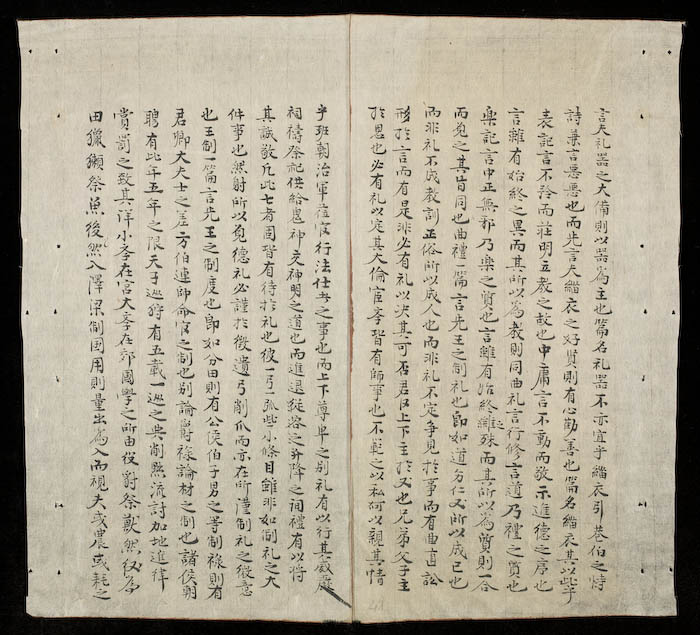 言夫礼器之大備則以器為主也篇名礼器不亦宜乎緇衣引巷伯之詩
詩兼言惡惡也而先言夫緇衣之好賢則有心勸善也篇名緇衣其以此乎
表記言不矜而莊明立教之敬也中庸言不動而敬示進德之序也
言雖有始終之異而其所以為教則同曲礼言行修言道乃禮之質也
樂記言中正無邪乃樂之質也言雖有始終雖殊而其所以為質則一合
而觅之其皆同也曲禮一篇言先王之制礼也即如道勿仁又所以成已也
而非礼不成教訓正俗所以成人也而非礼不定争見扵事而有曲直訟
形扵言而有是非必有礼以决其可否君臣上下主扵又也兄弟父子主
扵恩也必有礼以定其大倫宦斈皆有師事也不範之以私何以親其情
乎班朝治軍莅官行法仕者之事也而上下尊卑之别礼有以行其威嚴
祠禱祭祀供給鬼神交神明之道也而進退從容之升降之祠禮有以将
其誠敬凢此七者固皆有待扵礼也彼一弓一弧些小條目雖非如制礼之大
件事也然射所以觅德礼必謹扵徵遺弓削爪而亦在所謹制礼之微意
也王制一篇言先王之制度也即如分田則有公侯伯子男之等制禄則有
君卿大夫士之差方伯連師命官之制也别論爵禄論材之制也諸侯朝
聘有比年五年之限天子巡狩有五載一巡之典削黜流討加地進律
賞罰之致其详小斈在宮大斈在郊國學之所由设豺祭獸然後為
田獵獺祭魚後然入澤梁制国用則量出為入而視夫或農或耗之